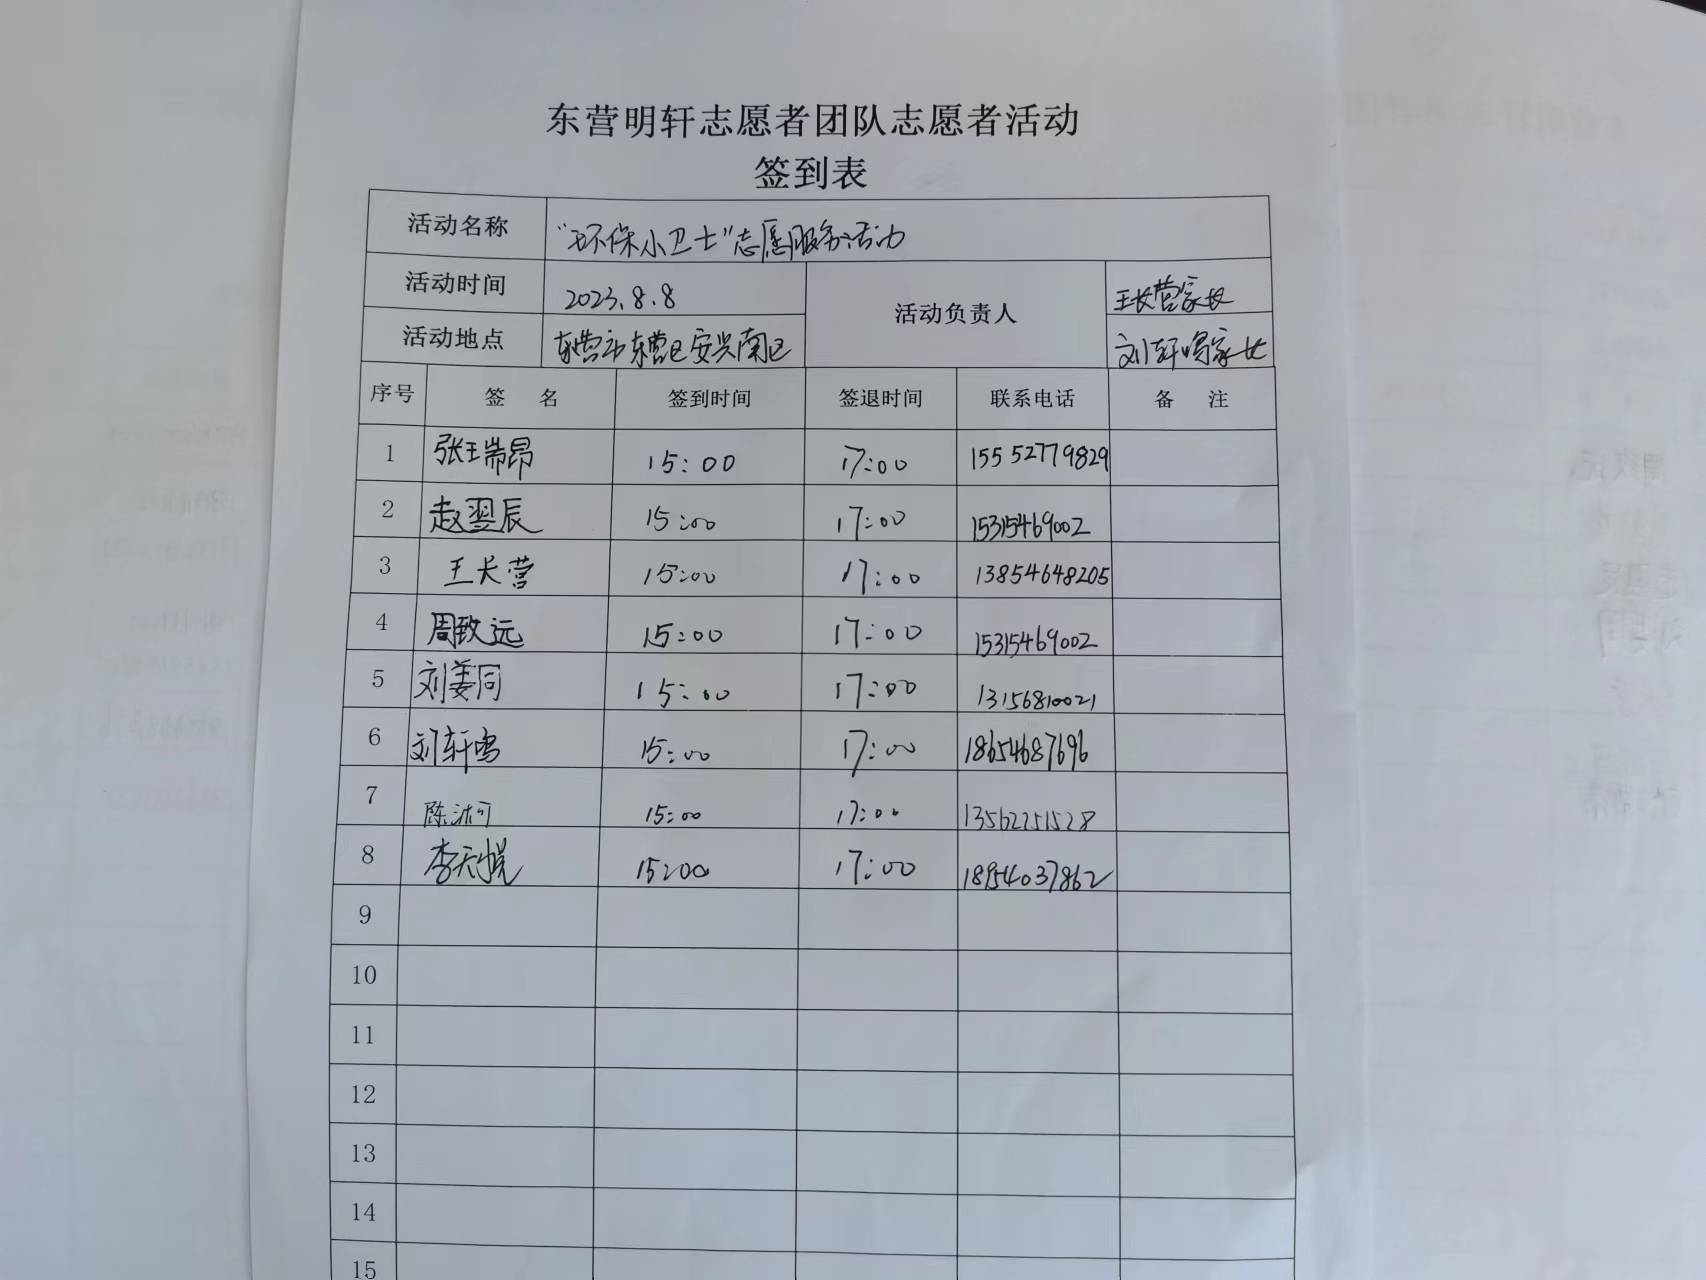 东营明轩志愿者团队志愿者活动
签到表
活动名称 “环保小卫士”志愿服务活动
活动时间 2023.8.8 活动负责人 王长营家长
活动地点 东营市东营区安兴南区 刘轩鸣家长
序号 签 名 签到时间 签退时间 联系电话 备 注
1 张王瑞昂 15:00 17:00 15552779829
2 赵翌辰 15:00 17:00 15315469002
3 王长营 15:00 17:00 13854648205
4 周致远 15:00 17:00 15315469002
5 刘姜同 15:00 17:00 13156810021
6 刘轩鸣 15:00 17:00 18654687696
7 陈沐可 15:00 17:00 13562251528
8 李天悦 15:00 17:00 18954037862
9
10
11
12
13
14
15